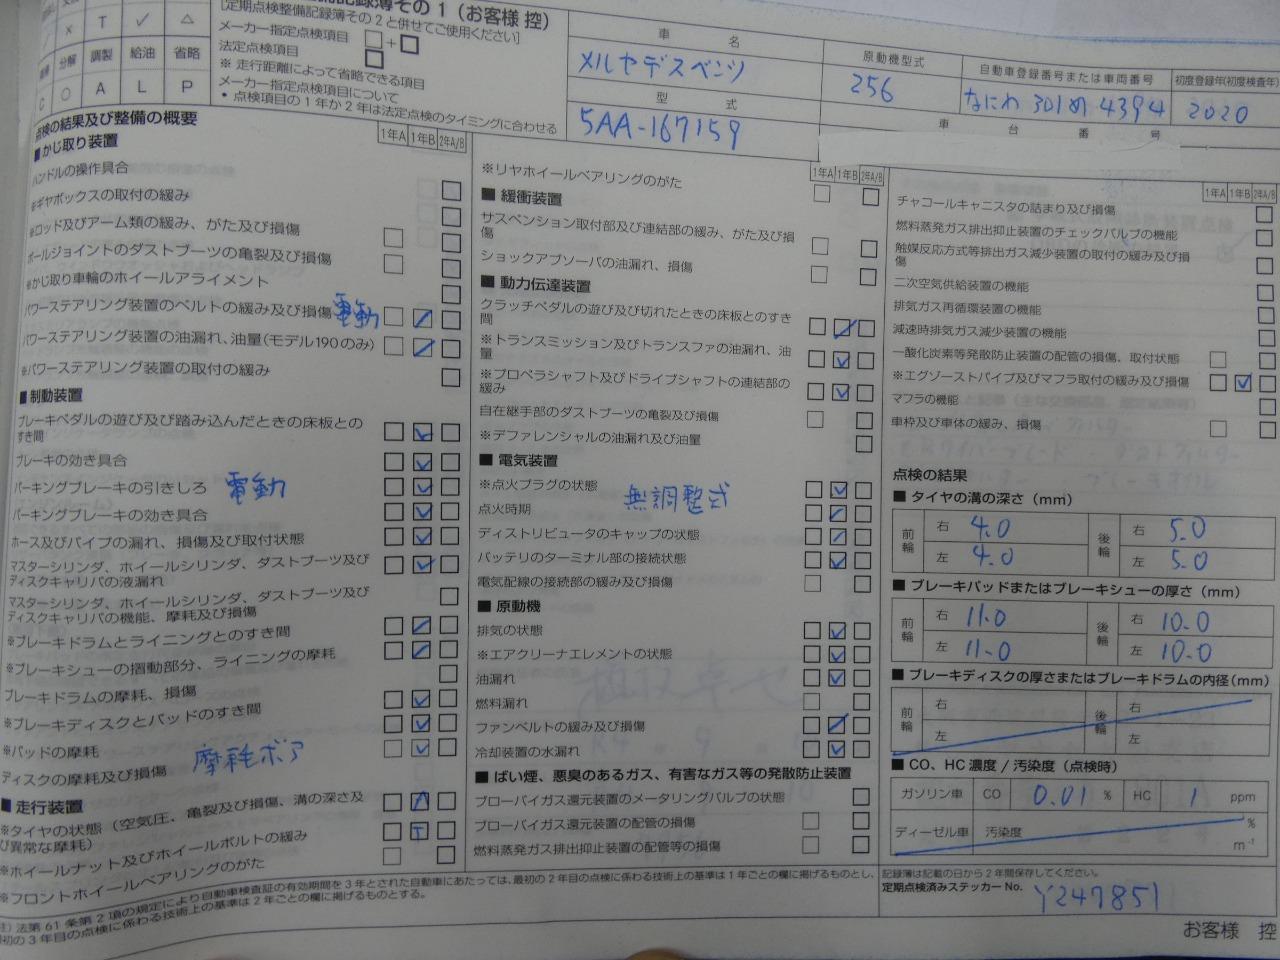 備記録簿その1（お客様 控）
［定期点検整備記録簿その2と併せてご使用ください］
メーカー指定点検項目 □+□
法定点検項目 □
※ 走行距離によって省略できる項目
メーカー指定点検項目について
・点検項目の1年か2年は法定点検のタイミングに合わせる
× T ✓ △
分解 調製 給油 省略
C ○ A L P
車 名
メルセデスベンツ
原動機型式
256
自動車登録番号または車両番号
なにわ 301 め 4394
初度登録年(初度検査年)
2020
型 式
5AA-167159
車 台 番 号
点検の結果及び整備の概要
1年A 1年B 2年A/B
■ かじ取り装置
ハンドルの操作具合
※ギヤボックスの取付の緩み
※ロッド及びアーム類の緩み、がた及び損傷
ボールジョイントのダストブーツの亀裂及び損傷
※かじ取り車輪のホイールアライメント
パワーステアリング装置のベルトの緩み及び損傷 電動
パワーステアリング装置の油漏れ、油量(モデル190のみ)
※パワーステアリング装置の取付の緩み
■ 制動装置
ブレーキペダルの遊び及び踏み込んだときの床板とのすき間
ブレーキの効き具合
パーキングブレーキの引きしろ 電動
パーキングブレーキの効き具合
ホース及びパイプの漏れ、損傷及び取付状態
マスターシリンダ、ホイールシリンダ、ダストブーツ及び
ディスクキャリパの液漏れ
マスターシリンダ、ホイールシリンダ、ダストブーツ及び
ディスクキャリパの機能、摩耗及び損傷
※ブレーキドラムとライニングとのすき間
※ブレーキシューの摺動部分、ライニングの摩耗
ブレーキドラムの摩耗、損傷
※ブレーキディスクとパッドのすき間
※パッドの摩耗
ディスクの摩耗及び損傷
■ 走行装置
※タイヤの状態（空気圧、亀裂及び損傷、溝の深さ及
び異常な摩耗）
※ホイールナット及びホイールボルトの緩み T
※フロントホイールベアリングのがた
1年A 1年B 2年A/B
※リヤホイールベアリングのがた
■ 緩衝装置
サスペンション取付部及び連結部の緩み、がた及び損
傷
ショックアブソーバの油漏れ、損傷
■ 動力伝達装置
クラッチペダルの遊び及び切れたときの床板とのすき
間
※トランスミッション及びトランスファの油漏れ、油
量
※プロペラシャフト及びドライブシャフトの連結部の
緩み
自在継手部のダストブーツの亀裂及び損傷
※デファレンシャルの油漏れ及び油量
■ 電気装置
※点火プラグの状態 無調整式
点火時期
ディストリビュータのキャップの状態
バッテリのターミナル部の接続状態
電気配線の接続部の緩み及び損傷
■ 原動機
排気の状態
※エアクリーナエレメントの状態
油漏れ
燃料漏れ
ファンベルトの緩み及び損傷
冷却装置の水漏れ
■ ばい煙、悪臭のあるガス、有害なガス等の発散防止装置
ブローバイガス還元装置のメータリングバルブの状態
ブローバイガス還元装置の配管の損傷
燃料蒸発ガス排出抑止装置の配管等の損傷
1年A 1年B 2年A/B
チャコールキャニスタの詰まり及び損傷
燃料蒸発ガス排出抑止装置のチェックバルブの機能
触媒反応方式等排出ガス減少装置の取付の緩み及び損
傷
二次空気供給装置の機能
排気ガス再循環装置の機能
減速時排気ガス減少装置の機能
一酸化炭素等発散防止装置の配管の損傷、取付状態
※エグゾーストパイプ及びマフラ取付の緩み及び損傷
マフラの機能
車枠及び車体の緩み、損傷
点検の結果
■ タイヤの溝の深さ（mm）
前輪 右 4.0 後輪 右 5.0
左 4.0 左 5.0
■ ブレーキパッドまたはブレーキシューの厚さ（mm）
前輪 右 11.0 後輪 右 10.0
左 11.0 左 10.0
■ ブレーキディスクの厚さまたはブレーキドラムの内径(mm)
前輪 右 後輪 右
左 左
■ CO、HC 濃度 / 汚染度（点検時）
ガソリン車 CO 0.01 % HC 1 ppm
ディーゼル車 汚染度 % m⁻¹
注）法第61条第2項の規定により自動車検査証の有効期間を3年とされた自動車にあたっては、最初の2年目の点検に係わる技術上の基準は1年ごとの欄に掲げるものとし、
最初の3年目の点検に係わる技術上の基準は2年ごとの欄に掲げるものとする。
記録簿は記載の日から2年間保存してください。
定期点検済みステッカー No. Y247851
お客様 控